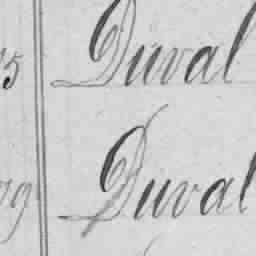 5 Duval
79 Duval